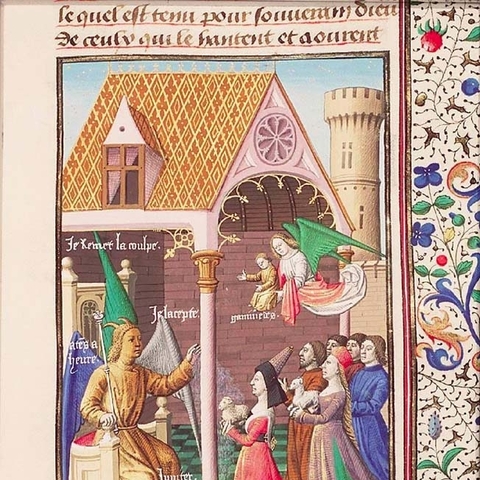 le quel est tenu pour souverain dieu
de ceulx qui le hantent et aourent
Je Remet la coulpe.
Je lacepte.
heure.
Jupiter.